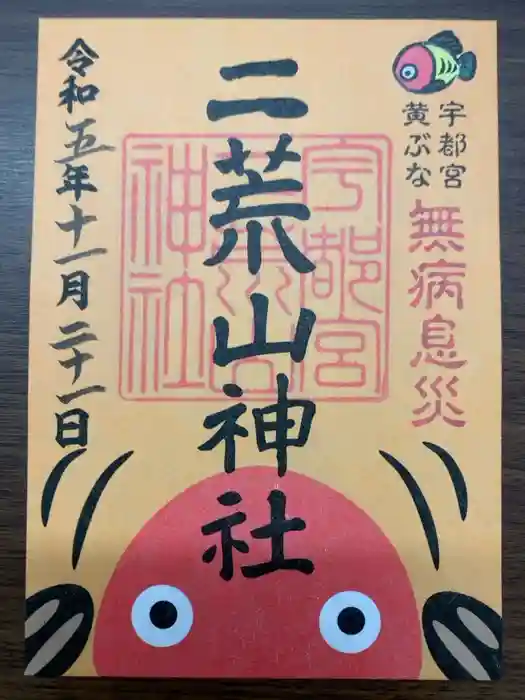 宇都宮
黄ぶな
無病息災
二荒山神社
宇都宮
二荒山
神社
令和五年十一月二十一日